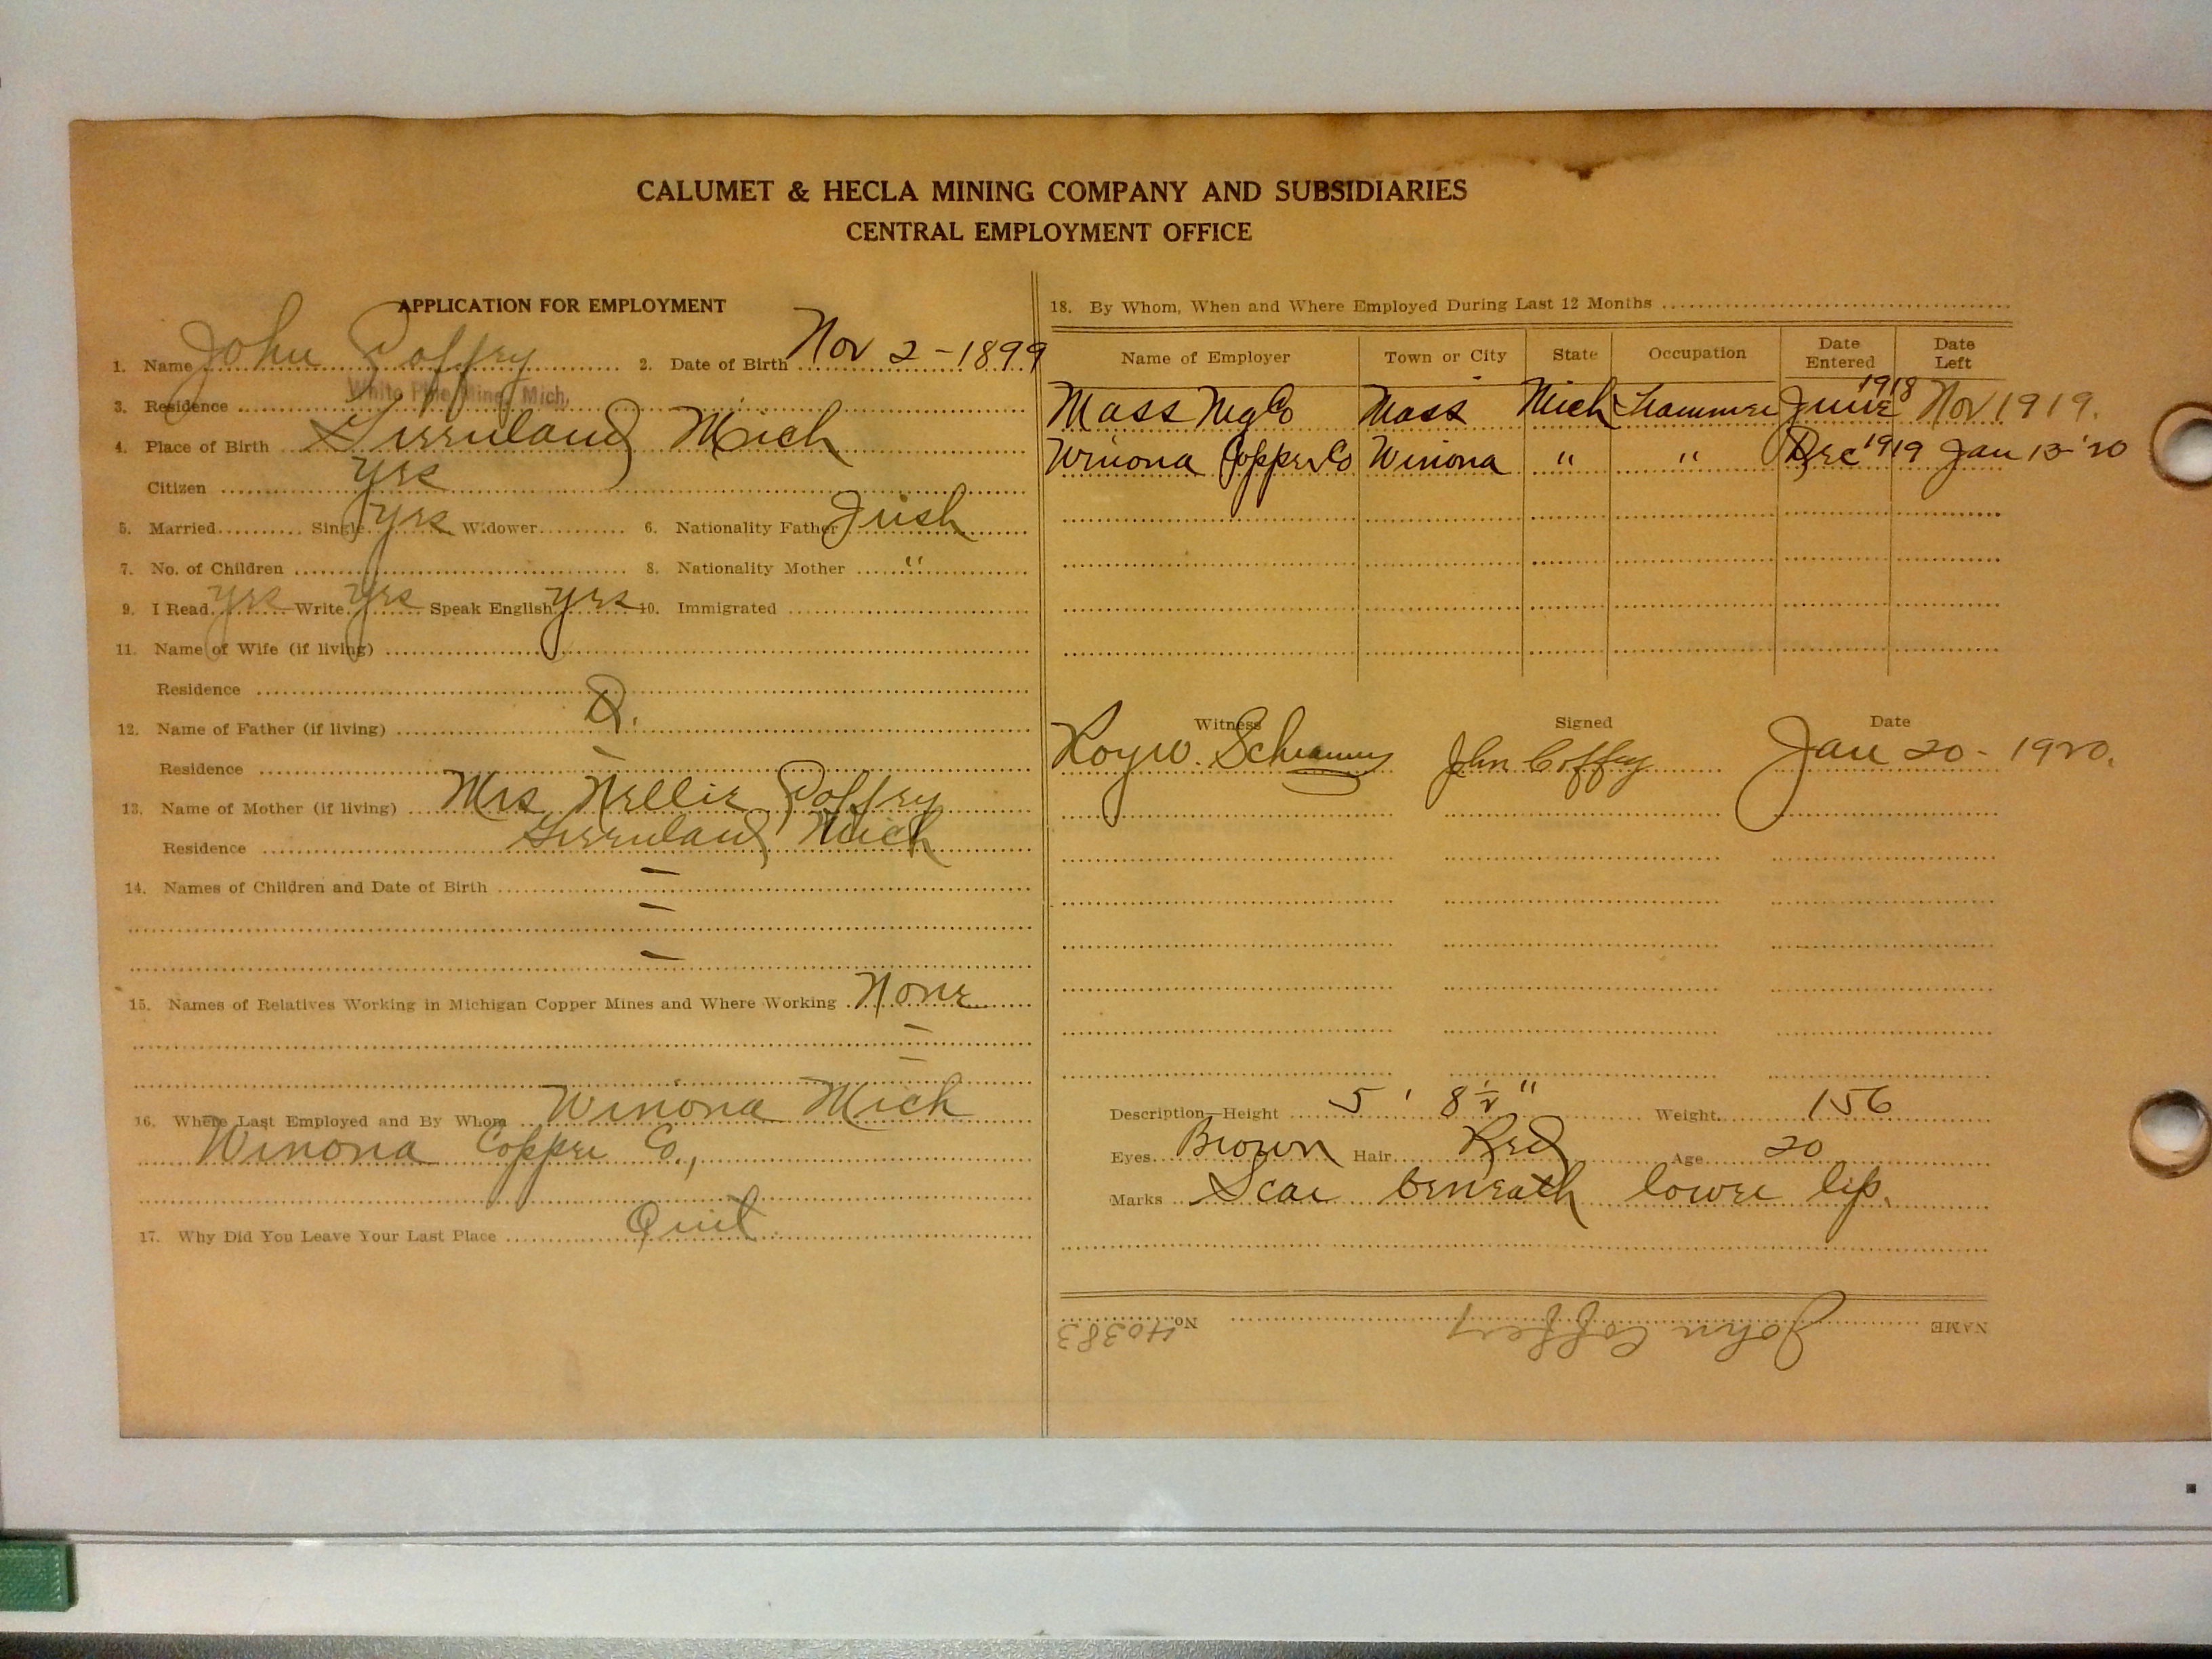 CALUMET & HECLA MINING COMPANY AND SUBSIDIARIES
CENTRAL EMPLOYMENT OFFICE
APPLICATION FOR EMPLOYMENT
1. Name John Coffey 2. Date of Birth Nov 2-1899
3. Residence White Pine Mine, Mich.
4. Place of Birth Greenland Mich
Citizen yes
5. Married Single yes Widower 6. Nationality Father Irish
7. No. of Children 8. Nationality Mother "
9. I Read yes Write yes Speak English yes 10. Immigrated
11. Name of Wife (if living)
Residence
12. Name of Father (if living) D.
Residence –
13. Name of Mother (if living) Mrs Nellie Coffey
Residence Greenland Mich
14. Names of Children and Date of Birth –
–
–
15. Names of Relatives Working in Michigan Copper Mines and Where Working None
–
–
16. Where Last Employed and By Whom Winona Mich
Winona Copper Co.,
17. Why Did You Leave Your Last Place Quit
18. By Whom, When and Where Employed During Last 12 Months
Name of Employer Town or City State Occupation Date Entered Date Left
Mass Mg Co Mass Mich Trammer June 1918 Nov 1919.
Winona Copper Co Winona " " Dec 1919 Jan 13-'20
Witness Signed Date
Roy W. John Coffey Jan 20-1920.
Description—Height 5' 8½" Weight 156
Eyes Brown Hair Red Age 20
Marks Scar beneath lower lip.
NAME John Coffey No. 40383